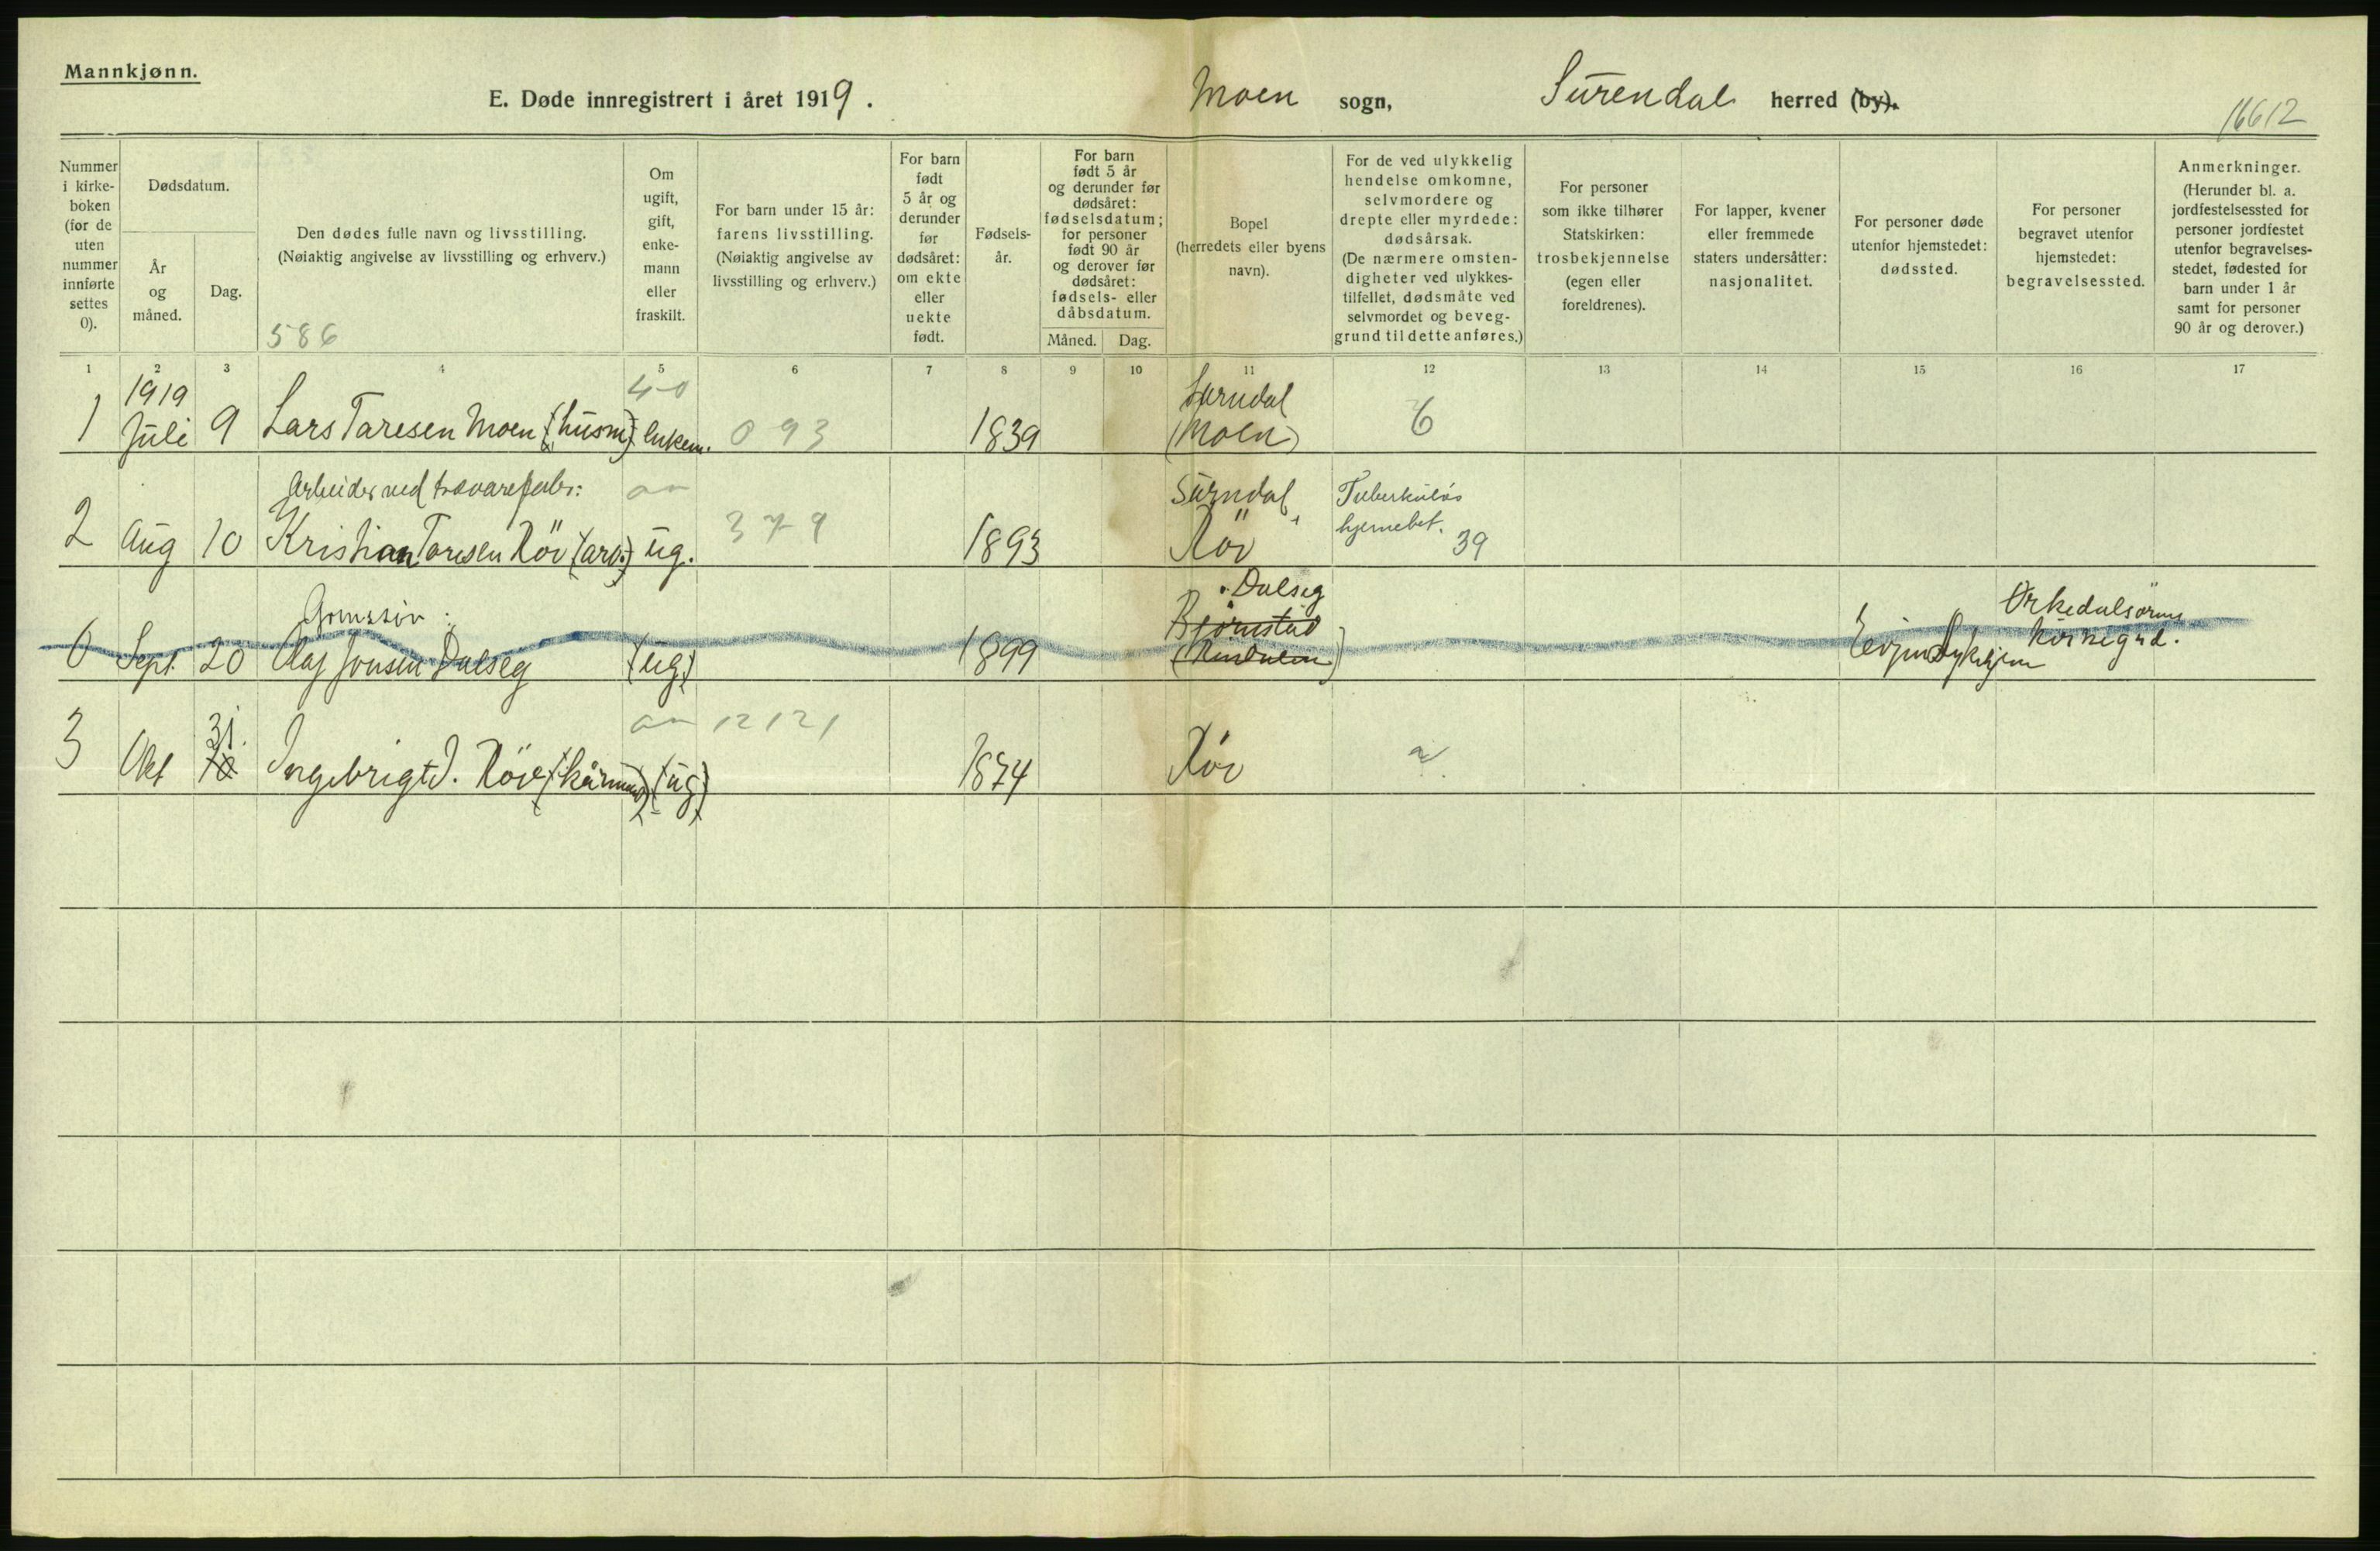 Mannkjønn.
E. Døde innregistrert i året 1919. Moen sogn, Surendal herred (by).
16612
Nummer i kirke-boken (for de uten nummer innførte settes 0).
Dødsdatum.
År og måned.
Dag.
Den dødes fulle navn og livsstilling.
(Nøiaktig angivelse av livsstilling og erhverv.)
586
Om ugift, gift, enke-mann eller fraskilt.
For barn under 15 år: farens livsstilling.
(Nøiaktig angivelse av livsstilling og erhverv.)
For barn født 5 år og derunder før dødsåret: om ekte eller uekte født.
Fødsels-år.
For barn født 5 år og derunder før dødsåret: fødselsdatum; for personer født 90 år og derover før dødsåret: fødsels- eller dåbsdatum.
Måned. Dag.
Bopel (herredets eller byens navn).
For de ved ulykkelig hendelse omkomne, selvmordere og drepte eller myrdede: dødsårsak.
(De nærmere omsten-digheter ved ulykkes-tilfellet, dødsmåte ved selvmordet og beveg-grund til dette anføres.)
For personer som ikke tilhører Statskirken: trosbekjennelse (egen eller foreldrenes).
For lapper, kvener eller fremmede staters undersåtter: nasjonalitet.
For personer døde utenfor hjemstedet: dødssted.
For personer begravet utenfor hjemstedet: begravelsessted.
Anmerkninger.
(Herunder bl. a. jordfestelsessted for personer jordfestet utenfor begravelses-stedet, fødested for barn under 1 år samt for personer 90 år og derover.)
1 2 3 4 5 6 7 8 9 10 11 12 13 14 15 16 17
1919 40 Surndal
1 Juli 9 Lars Taresen Moen (husm) enkem. 093 1839 (Moen) 6
Arbeider ved trævarefabr: Surndal Tuberkuløs
2 Aug 10 Kristian Taresen Röv (arb.) ug. 379 1893 Röv hjernebet. 39
Gårmssön: Dalseg Orkedalsörens
0 Sept. 20 Olaf Jonsen Dalseg (ug.) 1899 Björnstad (Rindalen) Sykehjem kirkegrd.
31. 12121
3 Okt 10 Ingebrigt J. Röv (kårmand) (ug) 1874 Röv